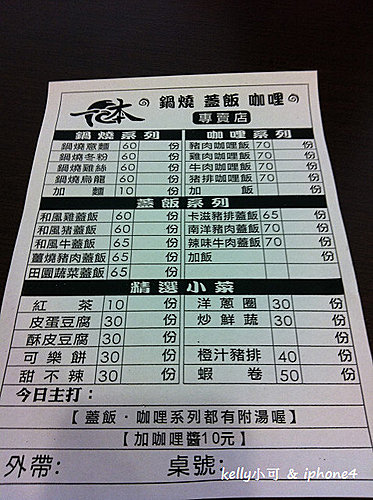 花本 鍋燒 蓋飯 咖哩
專賣店
鍋燒系列 咖哩系列
鍋燒意麵 60 份 豬肉咖哩飯 70 份
鍋燒冬粉 60 份 雞肉咖哩飯 70 份
鍋燒雞絲 60 份 牛肉咖哩飯 70 份
鍋燒烏龍 60 份 豬排咖哩飯 70 份
加麵 10 份 加飯 份
蓋飯系列
和風雞蓋飯 60 份 卡滋豬排蓋飯 65 份
和風豬蓋飯 60 份 南洋豬肉蓋飯 70 份
和風牛蓋飯 65 份 辣味牛肉蓋飯 70 份
薑燒豬肉蓋飯 65 份 加飯 份
田園蔬菜蓋飯 65 份
精選小菜
紅茶 10 份 洋蔥圈 30 份
皮蛋豆腐 30 份 炒鮮蔬 30 份
酥皮豆腐 30 份
可樂餅 30 份 橙汁豬排 40 份
甜不辣 30 份 蝦卷 50 份
今日主打:
【 蓋飯．咖哩系列都有附湯喔】
【 加咖哩醬10元 】
外帶: 桌號:
kelly小可 & iphone4